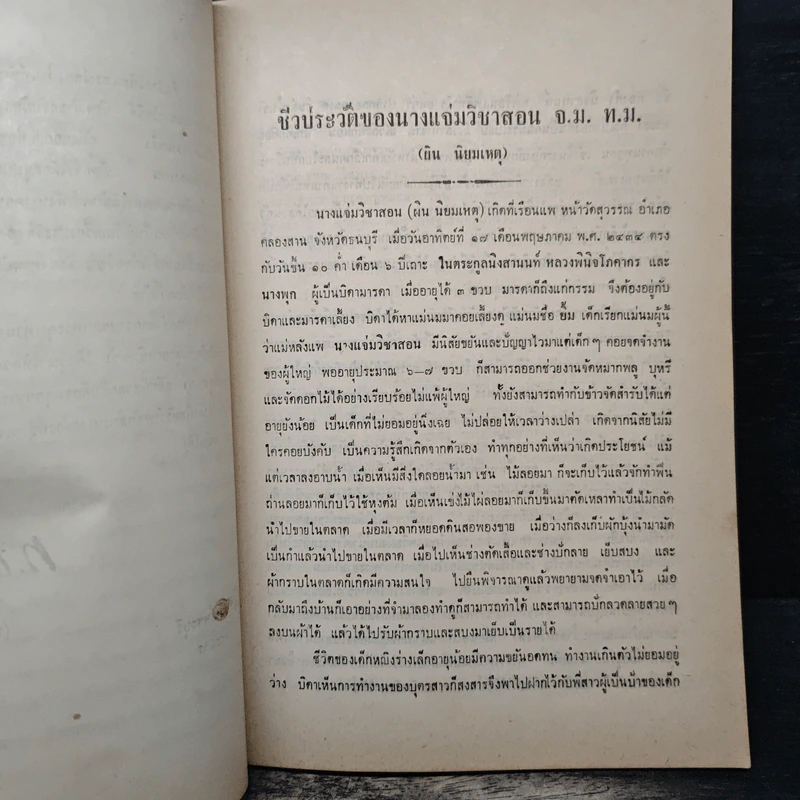 ชีวประวัติของนางแจ่มวิชาสอน จ.ม. ท.ม.
(ผิน นิยมเหตุ)
นางแจ่มวิชาสอน (ผิน นิยมเหตุ) เกิดที่เรือนแพ หน้าวัดสุวรรณ อำเภอ
คลองสาน จังหวัดธนบุรี เมื่อวันอาทิตย์ที่ ๑๗ เดือนพฤษภาคม พ.ศ. ๒๔๓๔ ตรง
กับวันขึ้น ๑๐ ค่ำ เดือน ๖ ปีเถาะ ในตระกูลนิงสานนท์ หลวงพินิจโภคากร และ
นางพุก ผู้เป็นบิดามารดา เมื่ออายุได้ ๓ ขวบ มารดาก็ถึงแก่กรรม จึงต้องอยู่กับ
บิดาและมารดาเลี้ยง บิดาได้หาแม่นมมาคอยเลี้ยงดู แม่นมชื่อ ยิ้ม เด็กเรียกแม่นมผู้นี้
ว่าแม่หลังแพ นางแจ่มวิชาสอน มีนิสัยขยันและปัญญาไวมาแต่เด็ก ๆ คอยจดจำงาน
ของผู้ใหญ่ พออายุประมาณ ๖–๗ ขวบ ก็สามารถออกช่วยงานจัดหมากพลู บุหรี่
และจัดดอกไม้ได้อย่างเรียบร้อยไม่แพ้ผู้ใหญ่ ทั้งยังสามารถทำกับข้าวจัดสำรับได้แต่
อายุยังน้อย เป็นเด็กที่ไม่ยอมอยู่นิ่งเฉย ไม่ปล่อยให้เวลาว่างเปล่า เกิดจากนิสัยไม่มี
ใครคอยบังคับ เป็นความรู้สึกเกิดจากตัวเอง ทำทุกอย่างที่เห็นว่าเกิดประโยชน์ แม้
แต่เวลาลงอาบน้ำ เมื่อเห็นมีสิ่งใดลอยน้ำมา เช่น ไม้ลอยมา ก็จะเก็บไว้แล้วจักทำฟืน
ถ่านลอยมาก็เก็บไว้ใช้หุงต้ม เมื่อเห็นเข่งไม้ไผ่ลอยมาก็เก็บขึ้นมาตัดเหลาทำเป็นไม้กลัด
นำไปขายในตลาด เมื่อมีเวลาก็หยอดดินสอพองขาย เมื่อว่างก็ลงเก็บผักบุ้งนำมามัด
เป็นกำแล้วนำไปขายในตลาด เมื่อไปเห็นช่างตัดเสื้อและช่างปักลาย เย็บสบง และ
ผ้ากราบในตลาดก็เกิดมีความสนใจ ไปยืนพิจารณาดูแล้วพยายามจดจำเอาไว้ เมื่อ
กลับมาถึงบ้านก็เอาอย่างที่จำมาลองทำดูก็สามารถทำได้ และสามารถปักลวดลายสวย ๆ
ลงบนผ้าได้ แล้วได้ไปรับผ้ากราบและสบงมาเย็บเป็นรายได้
ชีวิตของเด็กหญิงร่างเล็กอายุน้อยมีความขยันอดทน ทำงานเกินตัวไม่ยอมอยู่
ว่าง บิดาเห็นการทำงานของบุตรสาวก็สงสารจึงพาไปฝากไว้กับพี่สาวผู้เป็นป้าของเด็ก